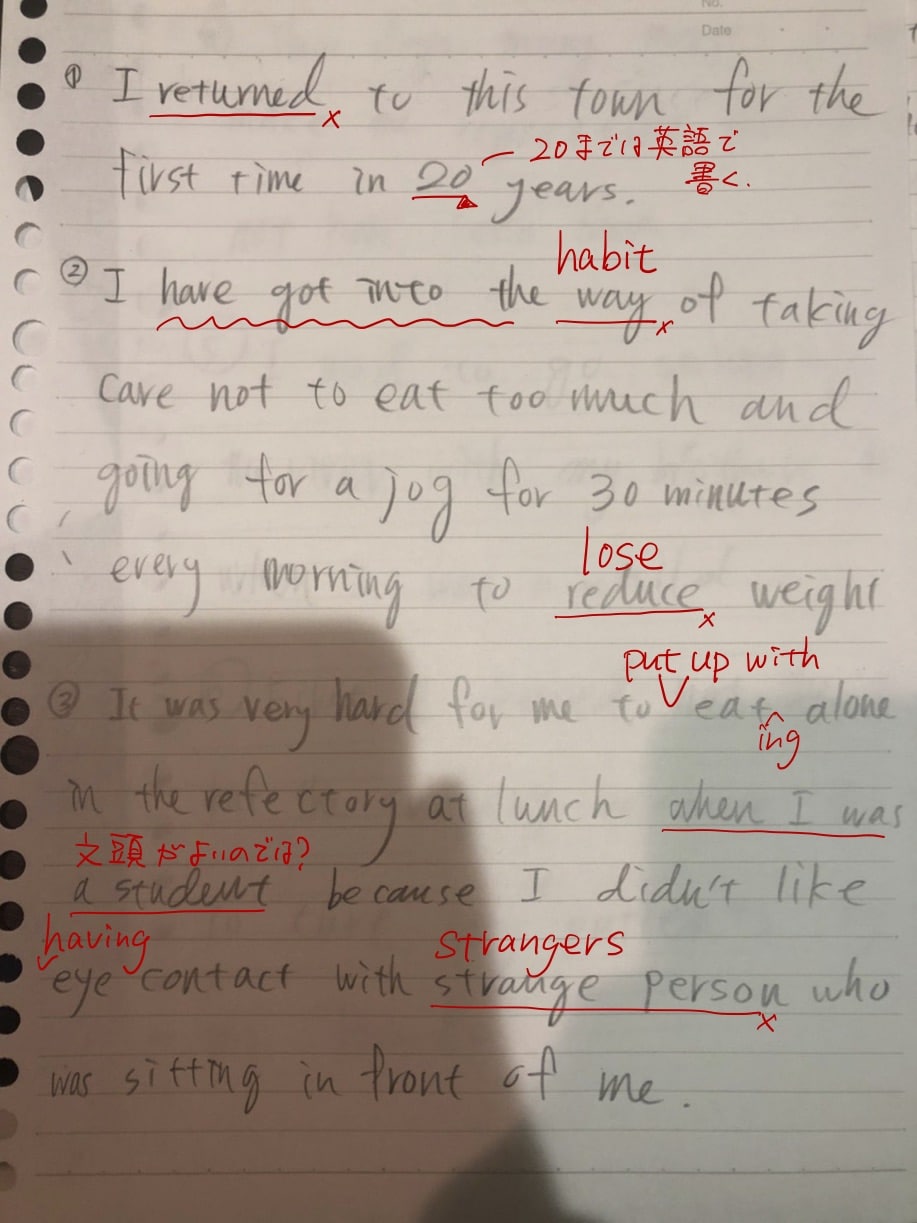 No.
Date
① I returned × to this town for the
20までは英語で
書く.
first time in 20 years.
habit
② I have got into the way × of taking
care not to eat too much and
going for a jog for 30 minutes
lose
every morning to reduce × weight
put up with
③ It was very hard for me to eat alone
ing
in the refectory at lunch when I was
文頭がよいのでは?
a student because I didn't like
having strangers
eye contact with strange person × who
was sitting in front of me.